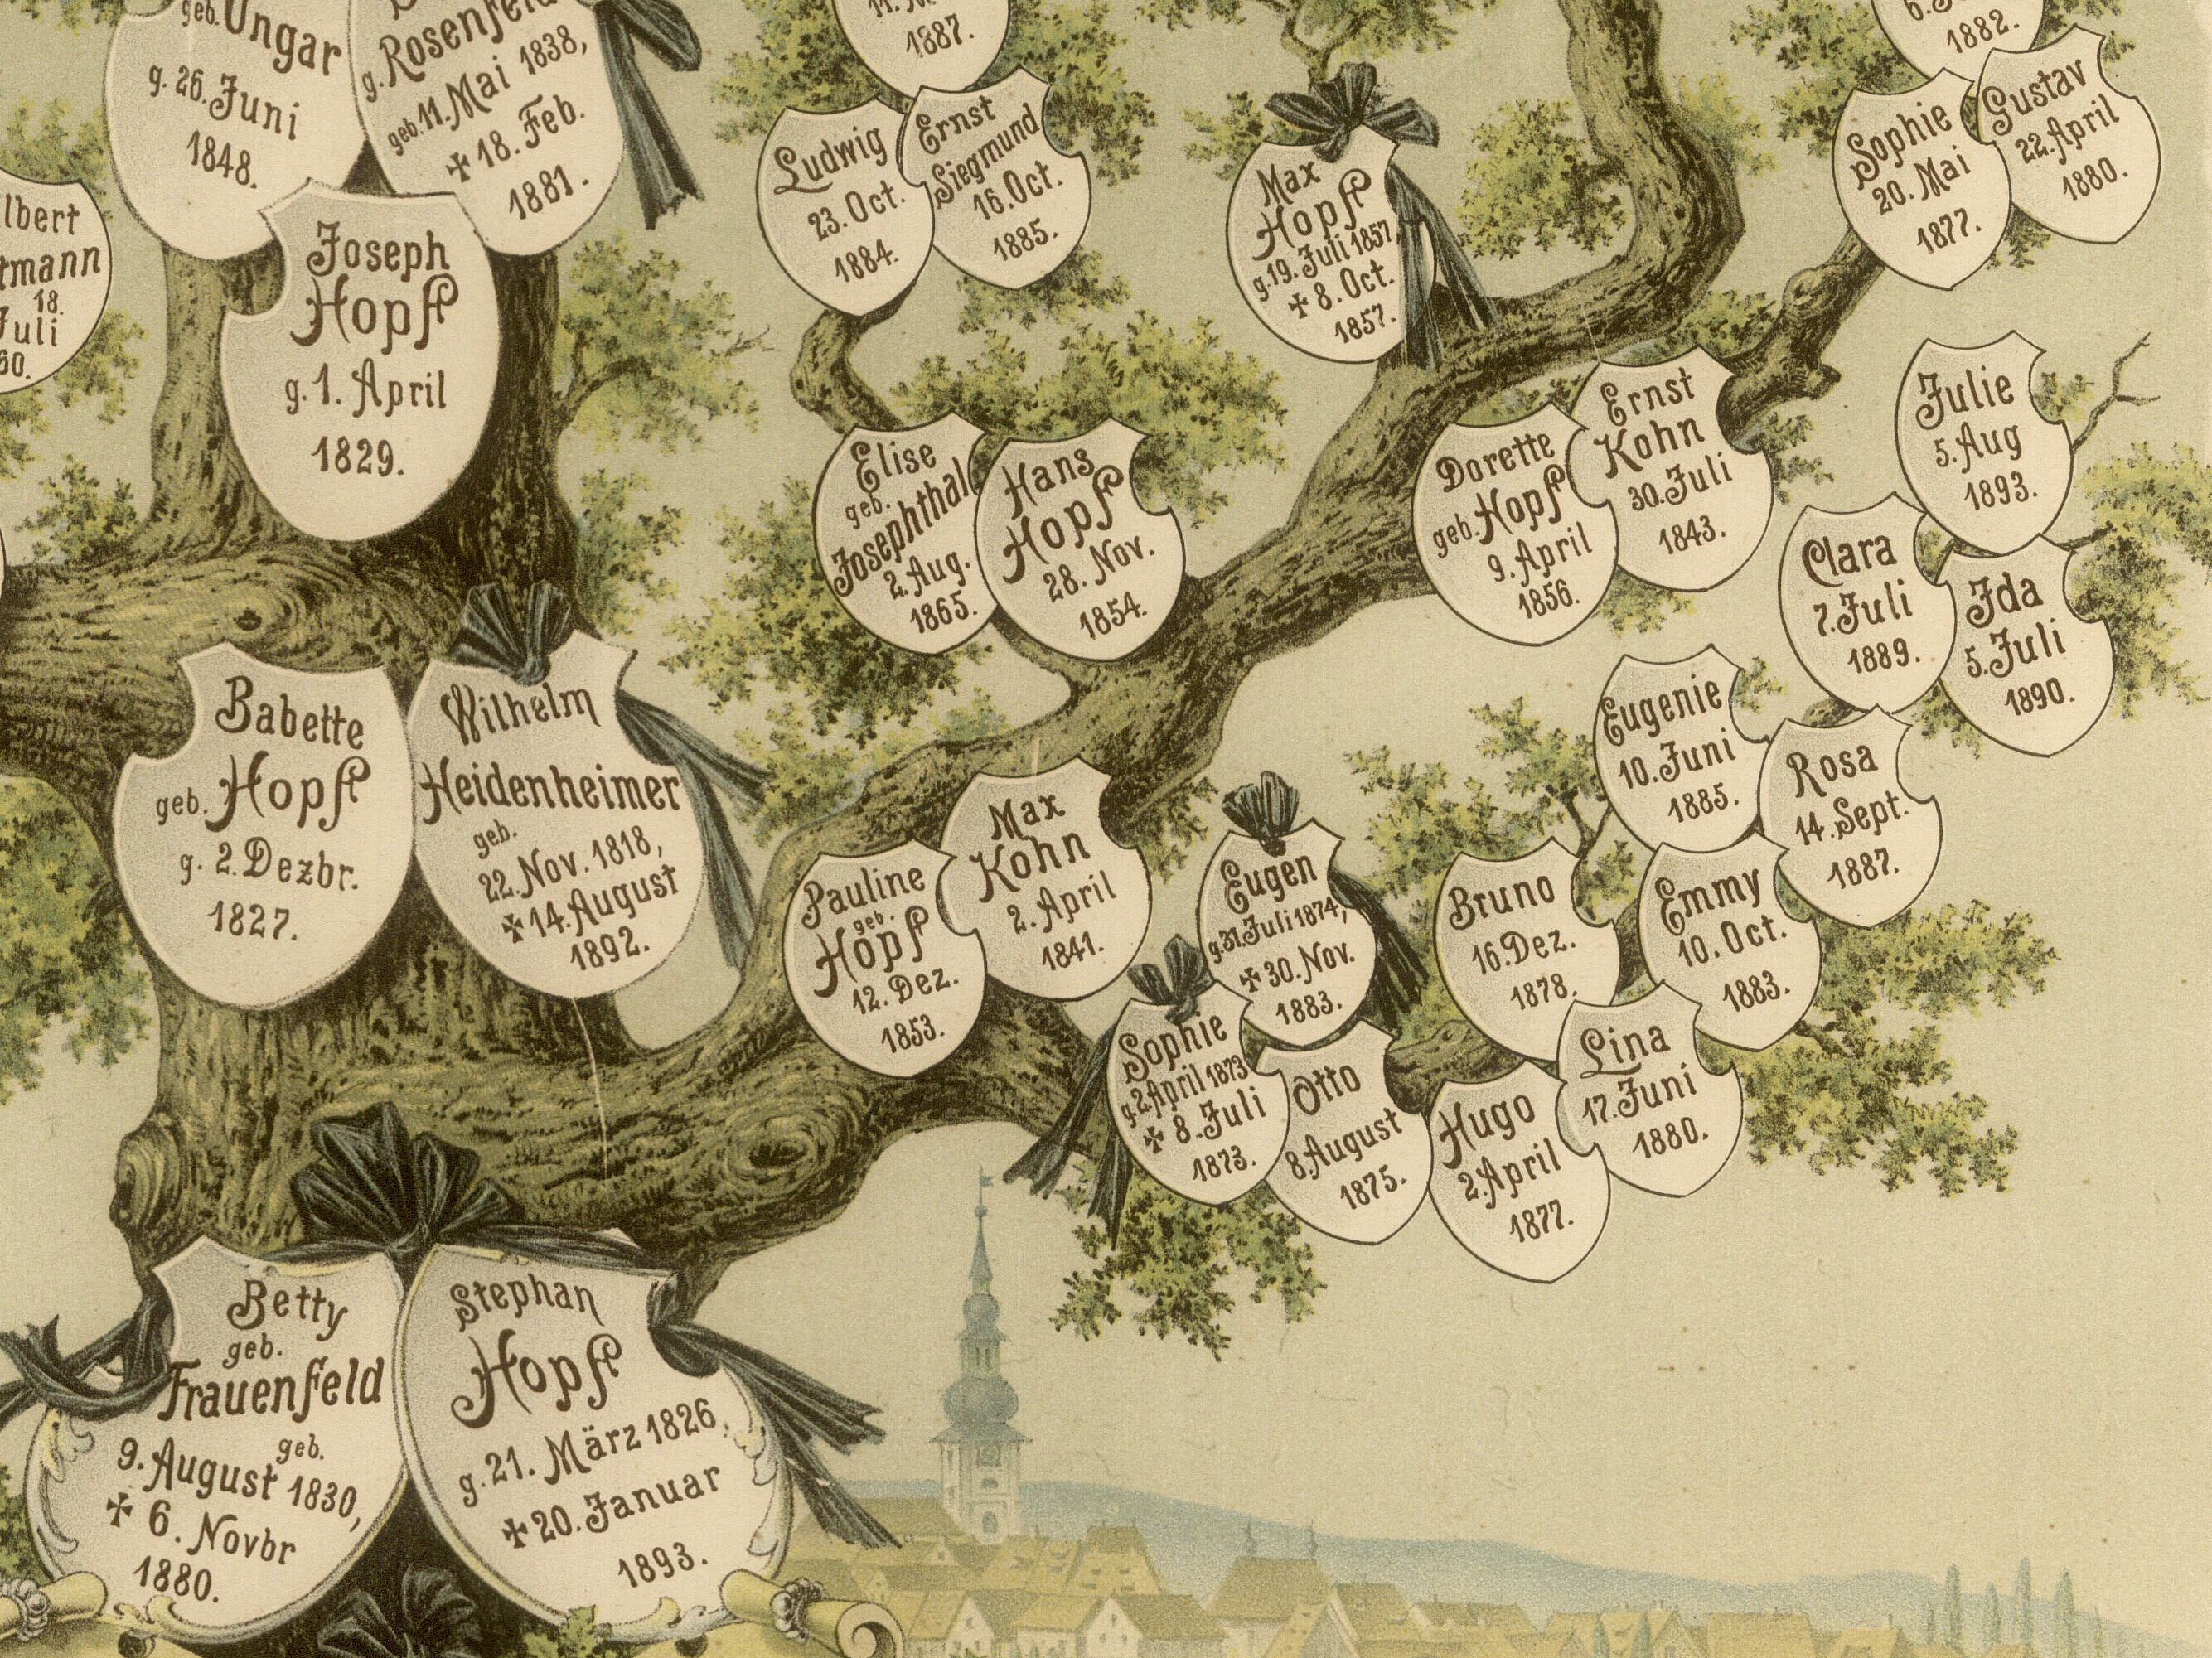 geb. Ungar
g. 26. Juni
1848.
g. Rosenfeld
geb. 11. Mai 1838,
✠ 18. Feb.
1881.
Joseph
Hopf
g. 1. April
1829.
18.
Juli
1887.
Ludwig
23. Oct.
1884.
Ernst
Siegmund
16. Oct.
1885.
Max
Hopf
g. 19. Juli 1857,
✠ 8. Oct.
1857.
1882.
Sophie
20. Mai
1877.
Gustav
22. April
1880.
Elise
geb.
Josephthal
2. Aug.
1865.
Hans
Hopf
28. Nov.
1854.
Dorette
geb. Hopf
9. April
1856.
Ernst
Kohn
30. Juli
1843.
Julie
5. Aug
1893.
Clara
7. Juli
1889.
Ida
5. Juli
1890.
Babette
geb. Hopf
g. 2. Dezbr.
1827.
Wilhelm
Heidenheimer
geb.
22. Nov. 1818,
✠ 14. August
1892.
Pauline
geb.
Hopf
12. Dez.
1853.
Max
Kohn
2. April
1841.
Eugenie
10. Juni
1885.
Rosa
14. Sept.
1887.
Eugen
g. 31. Juli 1874,
✠ 30. Nov.
1883.
Bruno
16. Dez.
1878.
Emmy
10. Oct.
1883.
Sophie
g. 2. April 1873
✠ 8. Juli
1873.
Otto
8. August
1875.
Hugo
2. April
1877.
Lina
17. Juni
1880.
Betty
geb.
Frauenfeld
geb.
9. August 1830,
✠ 6. Novbr
1880.
Stephan
Hopf
g. 21. März 1826,
✠ 20. Januar
1893.